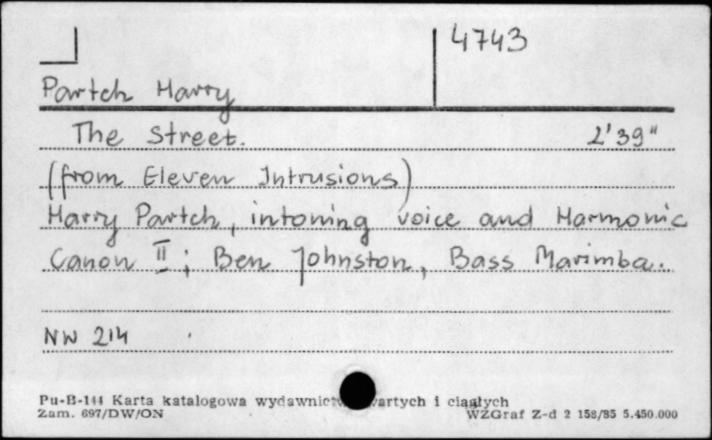 4743
Partch Harry
The Street. 2'39"
(from Eleven Intrusions)
Harry Partch, intoning voice and Harmonic
Canon II; Ben Johnston, Bass Marimba.
NW 214
Pu-B-144 Karta katalogowa wydawnict wartych i ciągłych
Zam. 697/DW/ON WZGraf Z-d 2 158/85 5.450.000